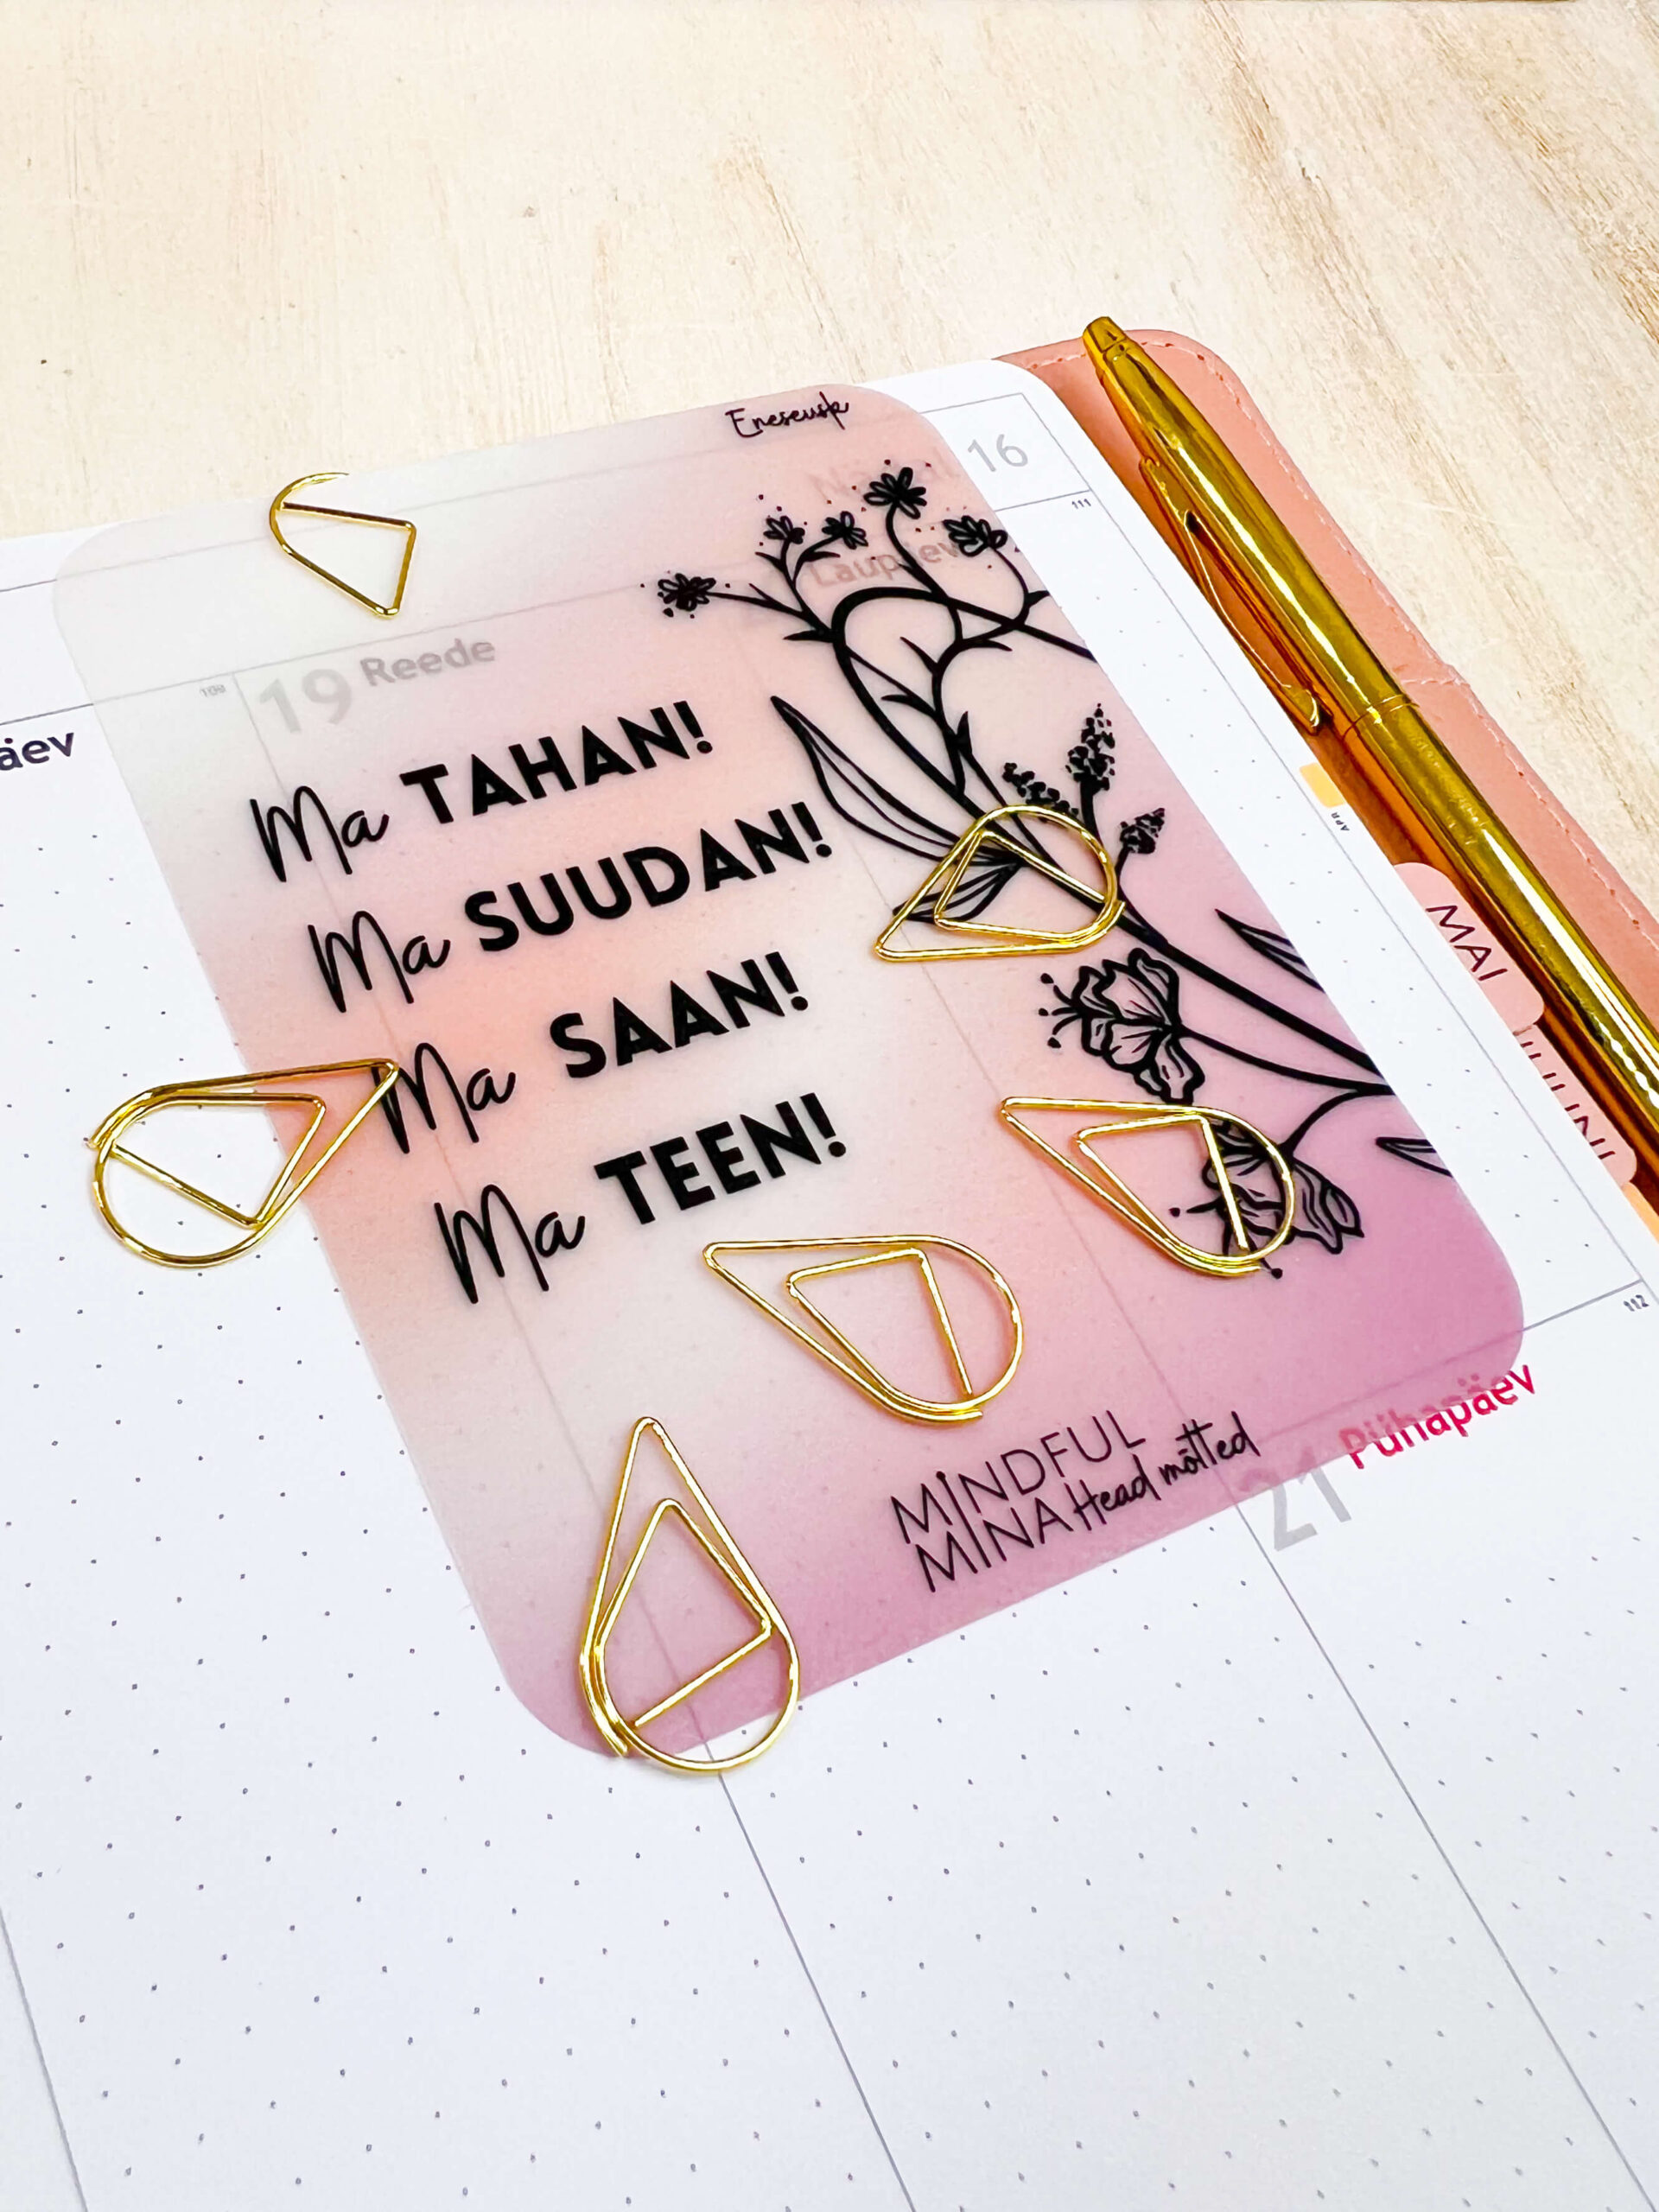 Eneseusk
16
111
Laupäev
109
19 Reede
äev
Ma TAHAN!
Ma SUUDAN!
Ma SAAN!
Ma TEEN!
APR
MAI
JUUNI
112
MINDFUL
MINA Head mõtted
21 Pühapäev